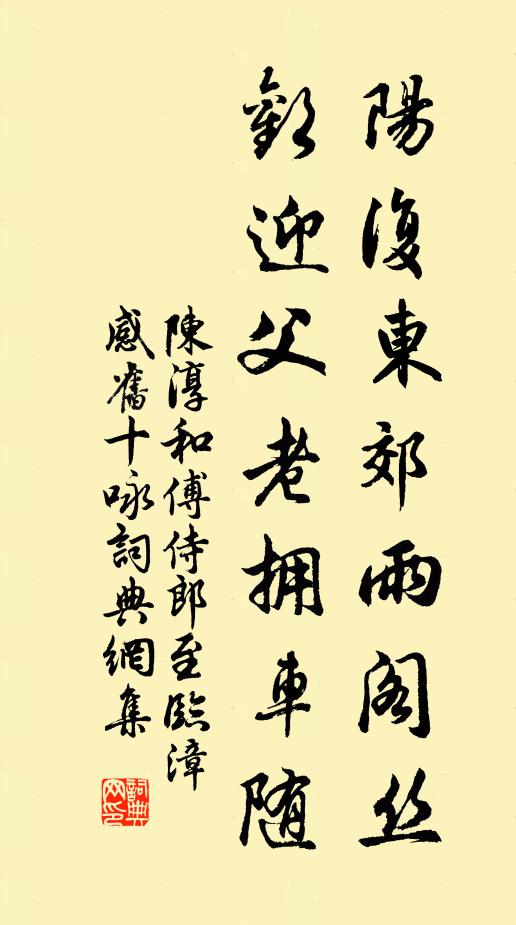 陽復東郊雨阁丝
歡迎父老拥車随
陳淳和傅侍郎至臨漳
感舊十咏詞典網集
詞典网印